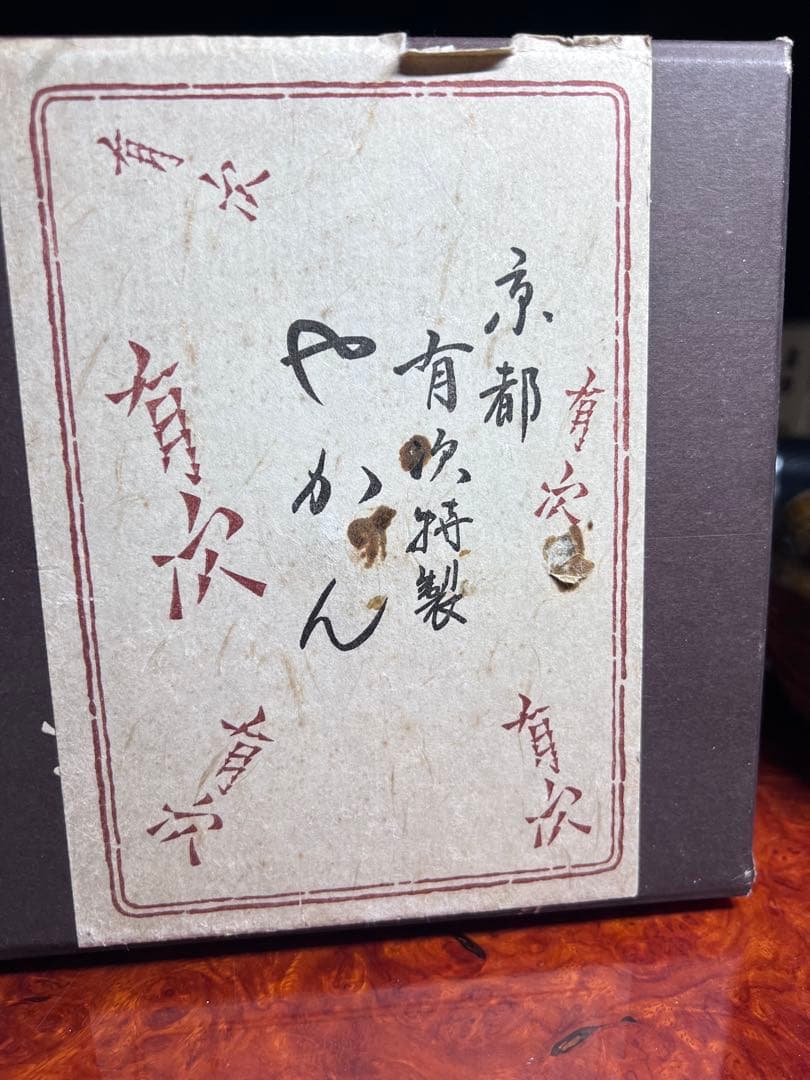 京都
有次特製
やかん
有次
有次
有次
有次
有次